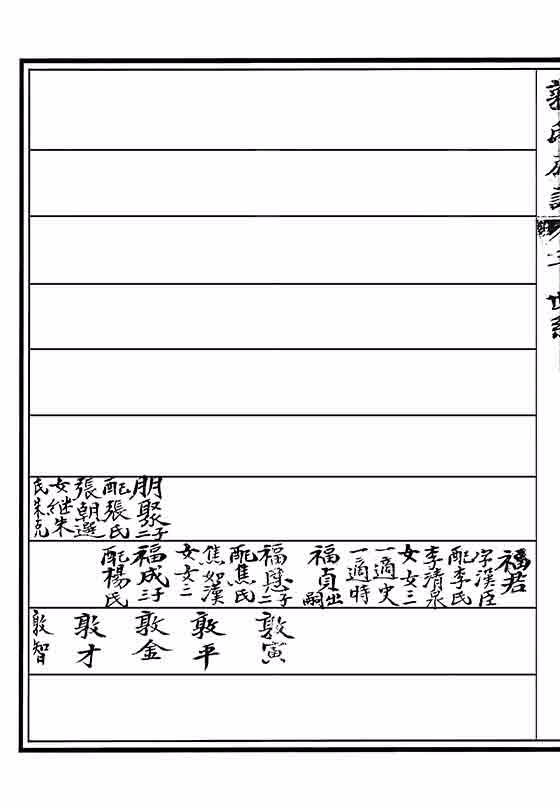 朋聚二子
配張氏
張朝選
女继朱
氏朱克
福君
字漢臣
配李氏
李清泉
女女三
一適史
一適時
福貞出嗣
福慰二子
配焦氏
焦如漢
女女二
福成三子
配楊氏
敦寅
敦平
敦金
敦才
敦智